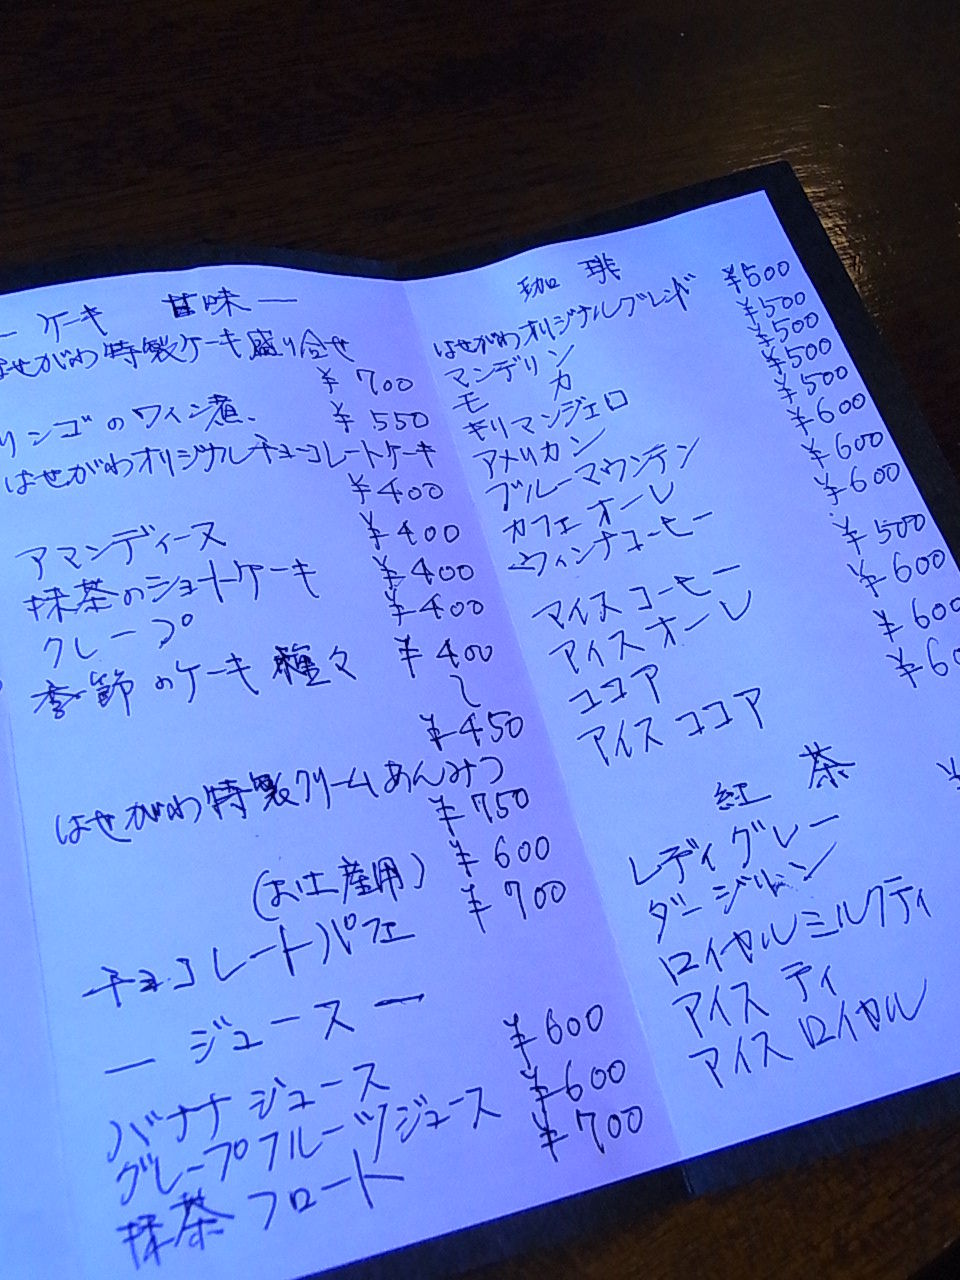 ー ケーキ 甘味 ー
はせがわ特製ケーキ盛り合せ
¥700
リンゴのワイン煮、 ¥550
はせがわオリジナルチョコレートケーキ
¥400
アマンディーヌ ¥400
抹茶のショートケーキ ¥400
クレープ ¥400
季節のケーキ種々 ¥400
〜
¥450
はせがわ特製クリームあんみつ
¥750
(お土産用) ¥600
チョコレートパフェ ¥700
ー ジュース ー
バナナジュース ¥600
グレープフルーツジュース ¥600
抹茶フロート ¥700
珈琲
はせがわオリジナルブレンド ¥500
マンデリン ¥500
モカ ¥500
キリマンジェロ ¥500
アメリカン ¥500
ブルーマウンテン ¥600
カフェオーレ ¥600
ウィンナコーヒー ¥600
アイスコーヒー ¥500
アイスオーレ ¥600
ココア ¥600
アイスココア ¥60
紅茶
レディグレー ¥
ダージリン
ロイヤルミルクティ
アイスティ
アイスロイヤル